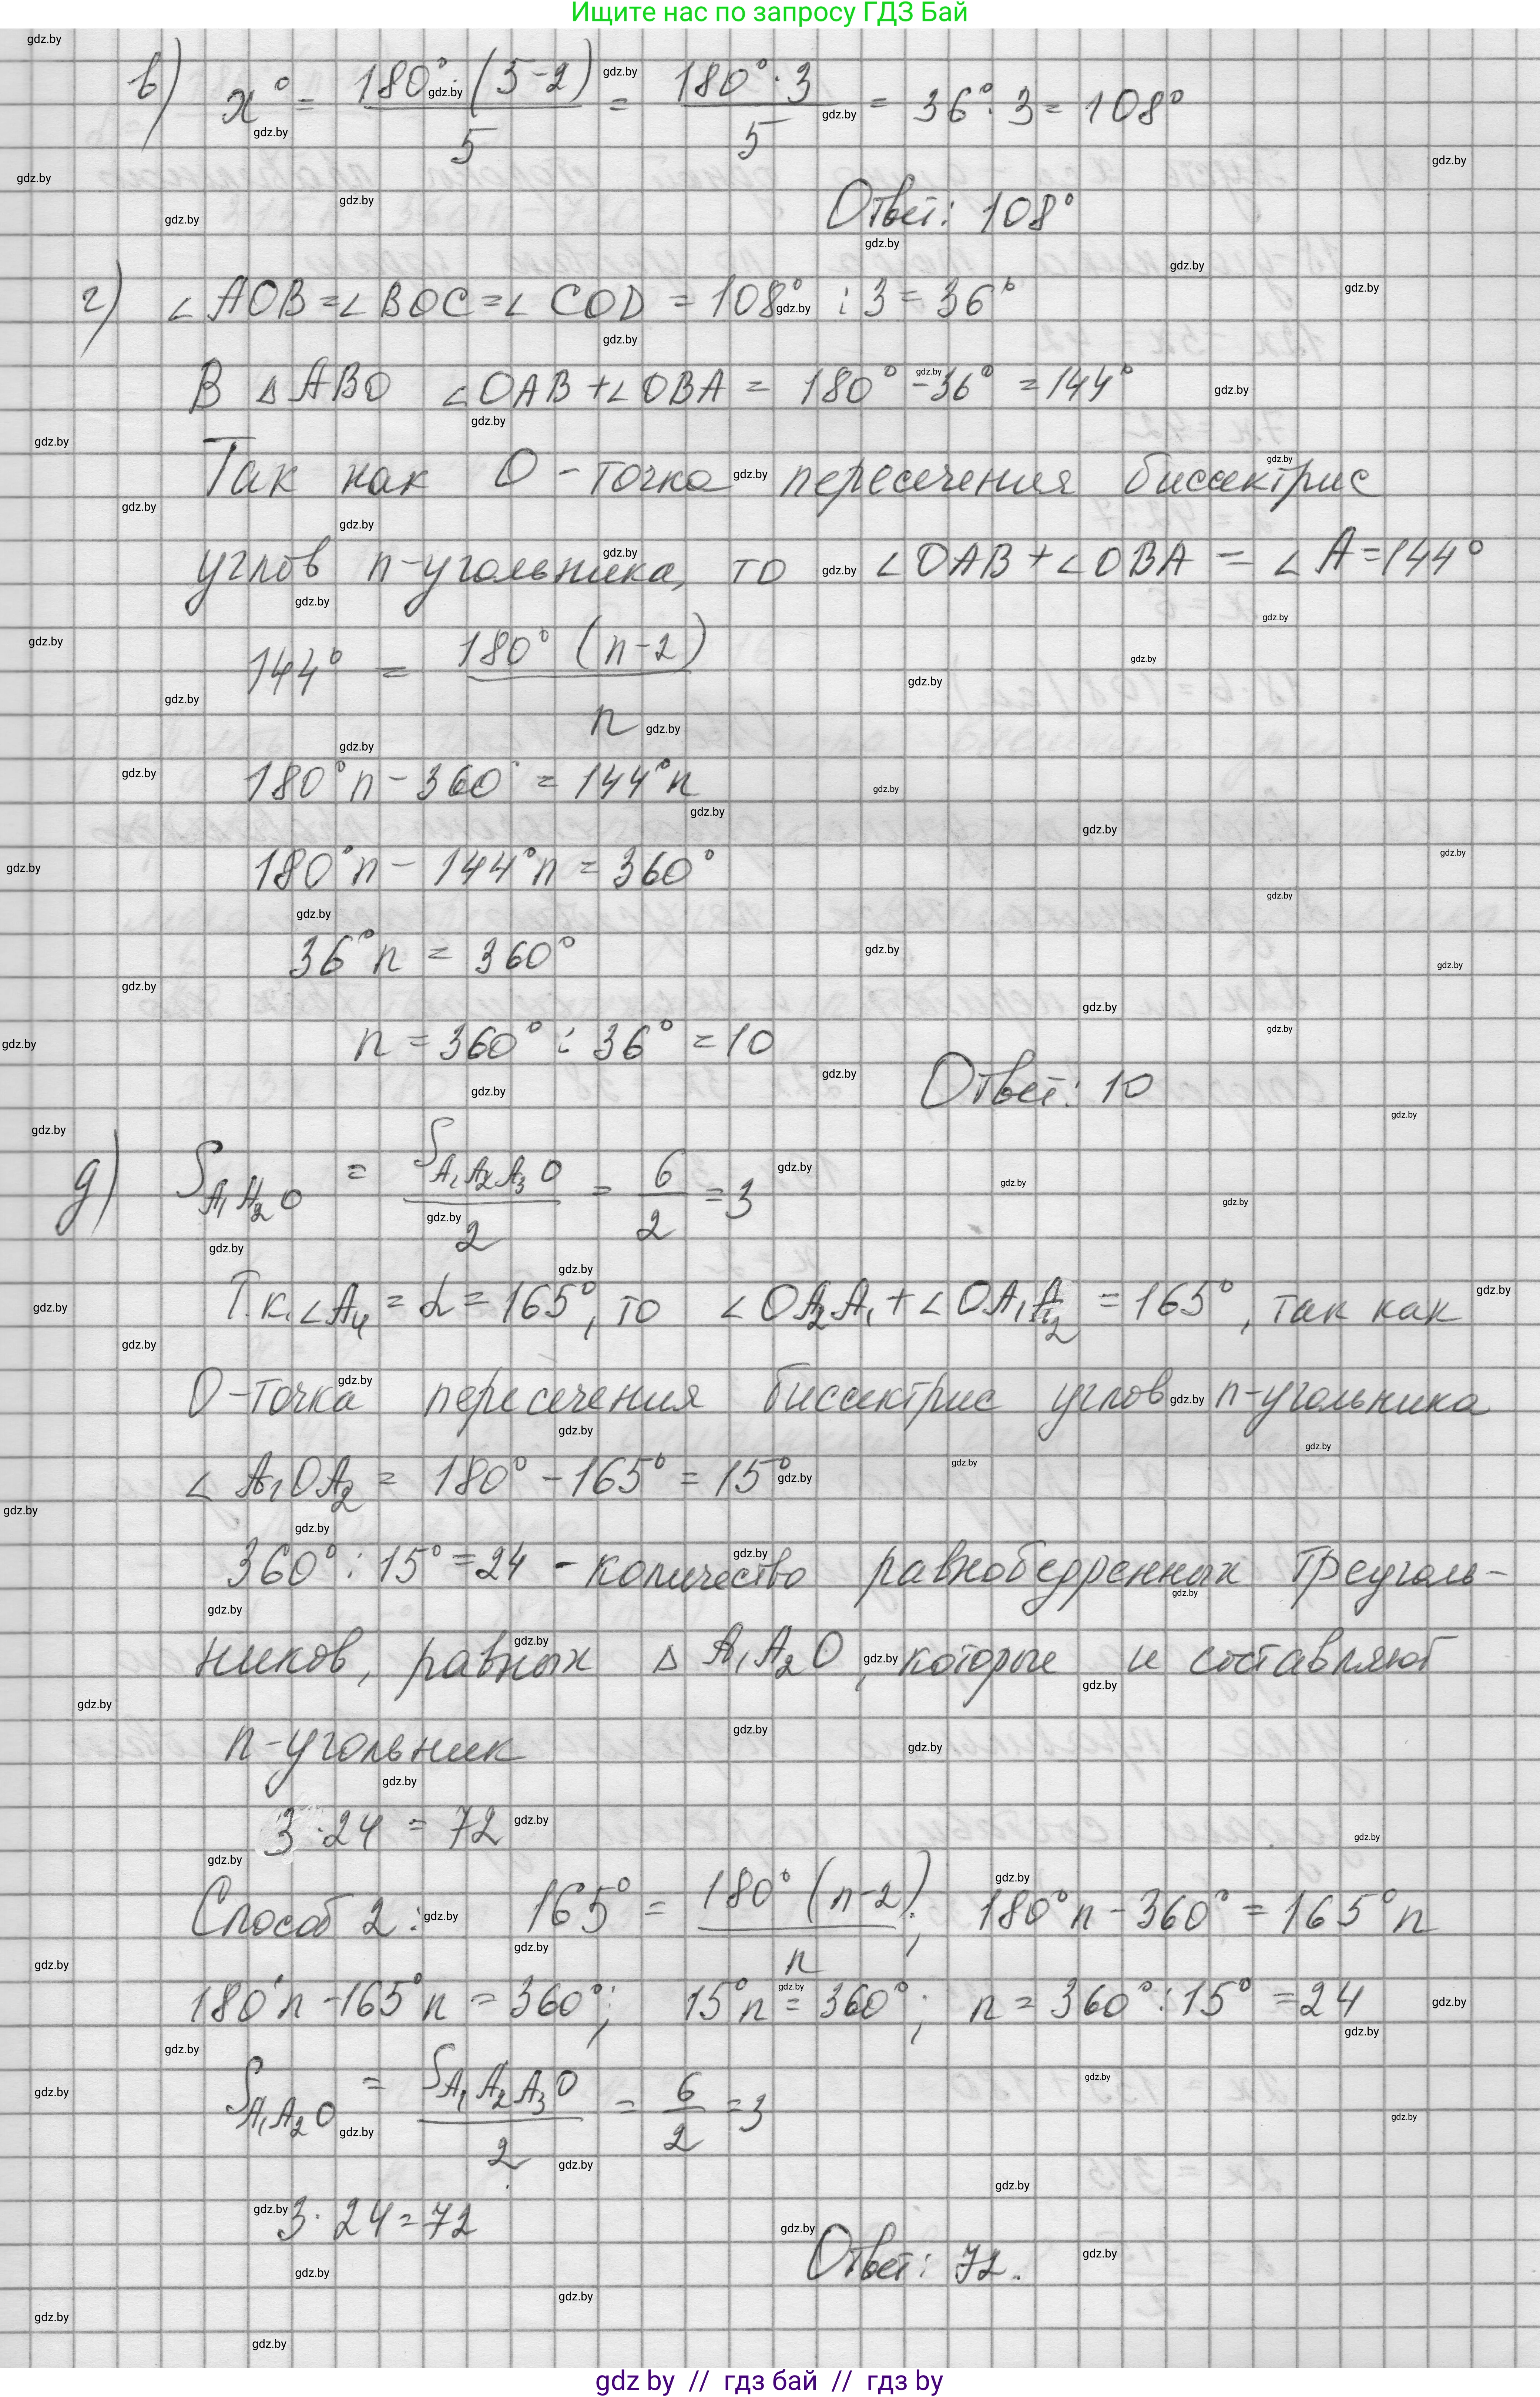 Ищите нас по запросу ГДЗ Бай
в) x° = 180°·(5-2)/5 = 180°·3/5 = 36°·3 = 108°
Ответ: 108°
г) ∠AOB = ∠BOC = ∠COD = 108° : 3 = 36°
В △ABO ∠OAB + ∠OBA = 180° - 36° = 144°
Так как O - точка пересечения биссектрис
углов n-угольника, то ∠OAB + ∠OBA = ∠A = 144°
144° = 180° (n-2)/n
180°n - 360° = 144°n
180°n - 144°n = 360°
36°n = 360°
n = 360° : 36° = 10
Ответ: 10
д) S_{A₁A₂O} = S_{A₁A₂A₃O}/2 = 6/2 = 3
Т.к. ∠A₄ = α = 165°, то ∠OA₂A₁ + ∠OA₁A₂ = 165°, так как
O-точка пересечения биссектрис углов n-угольника
∠A₁OA₂ = 180° - 165° = 15°
360° : 15° = 24 - количество равнобедренных треуголь-
ников, равных △A₁A₂O, которые и составляют
n-угольник
3·24 = 72
Способ 2: 165° = 180° (n-2)/n; 180°n - 360° = 165°n
180°n - 165°n = 360°; 15°n = 360°; n = 360° : 15° = 24
S_{A₁A₂O} = S_{A₁A₂A₃O}/2 = 6/2 = 3
3·24 = 72
Ответ: 72.
gdz by // гдз бай // гдз by